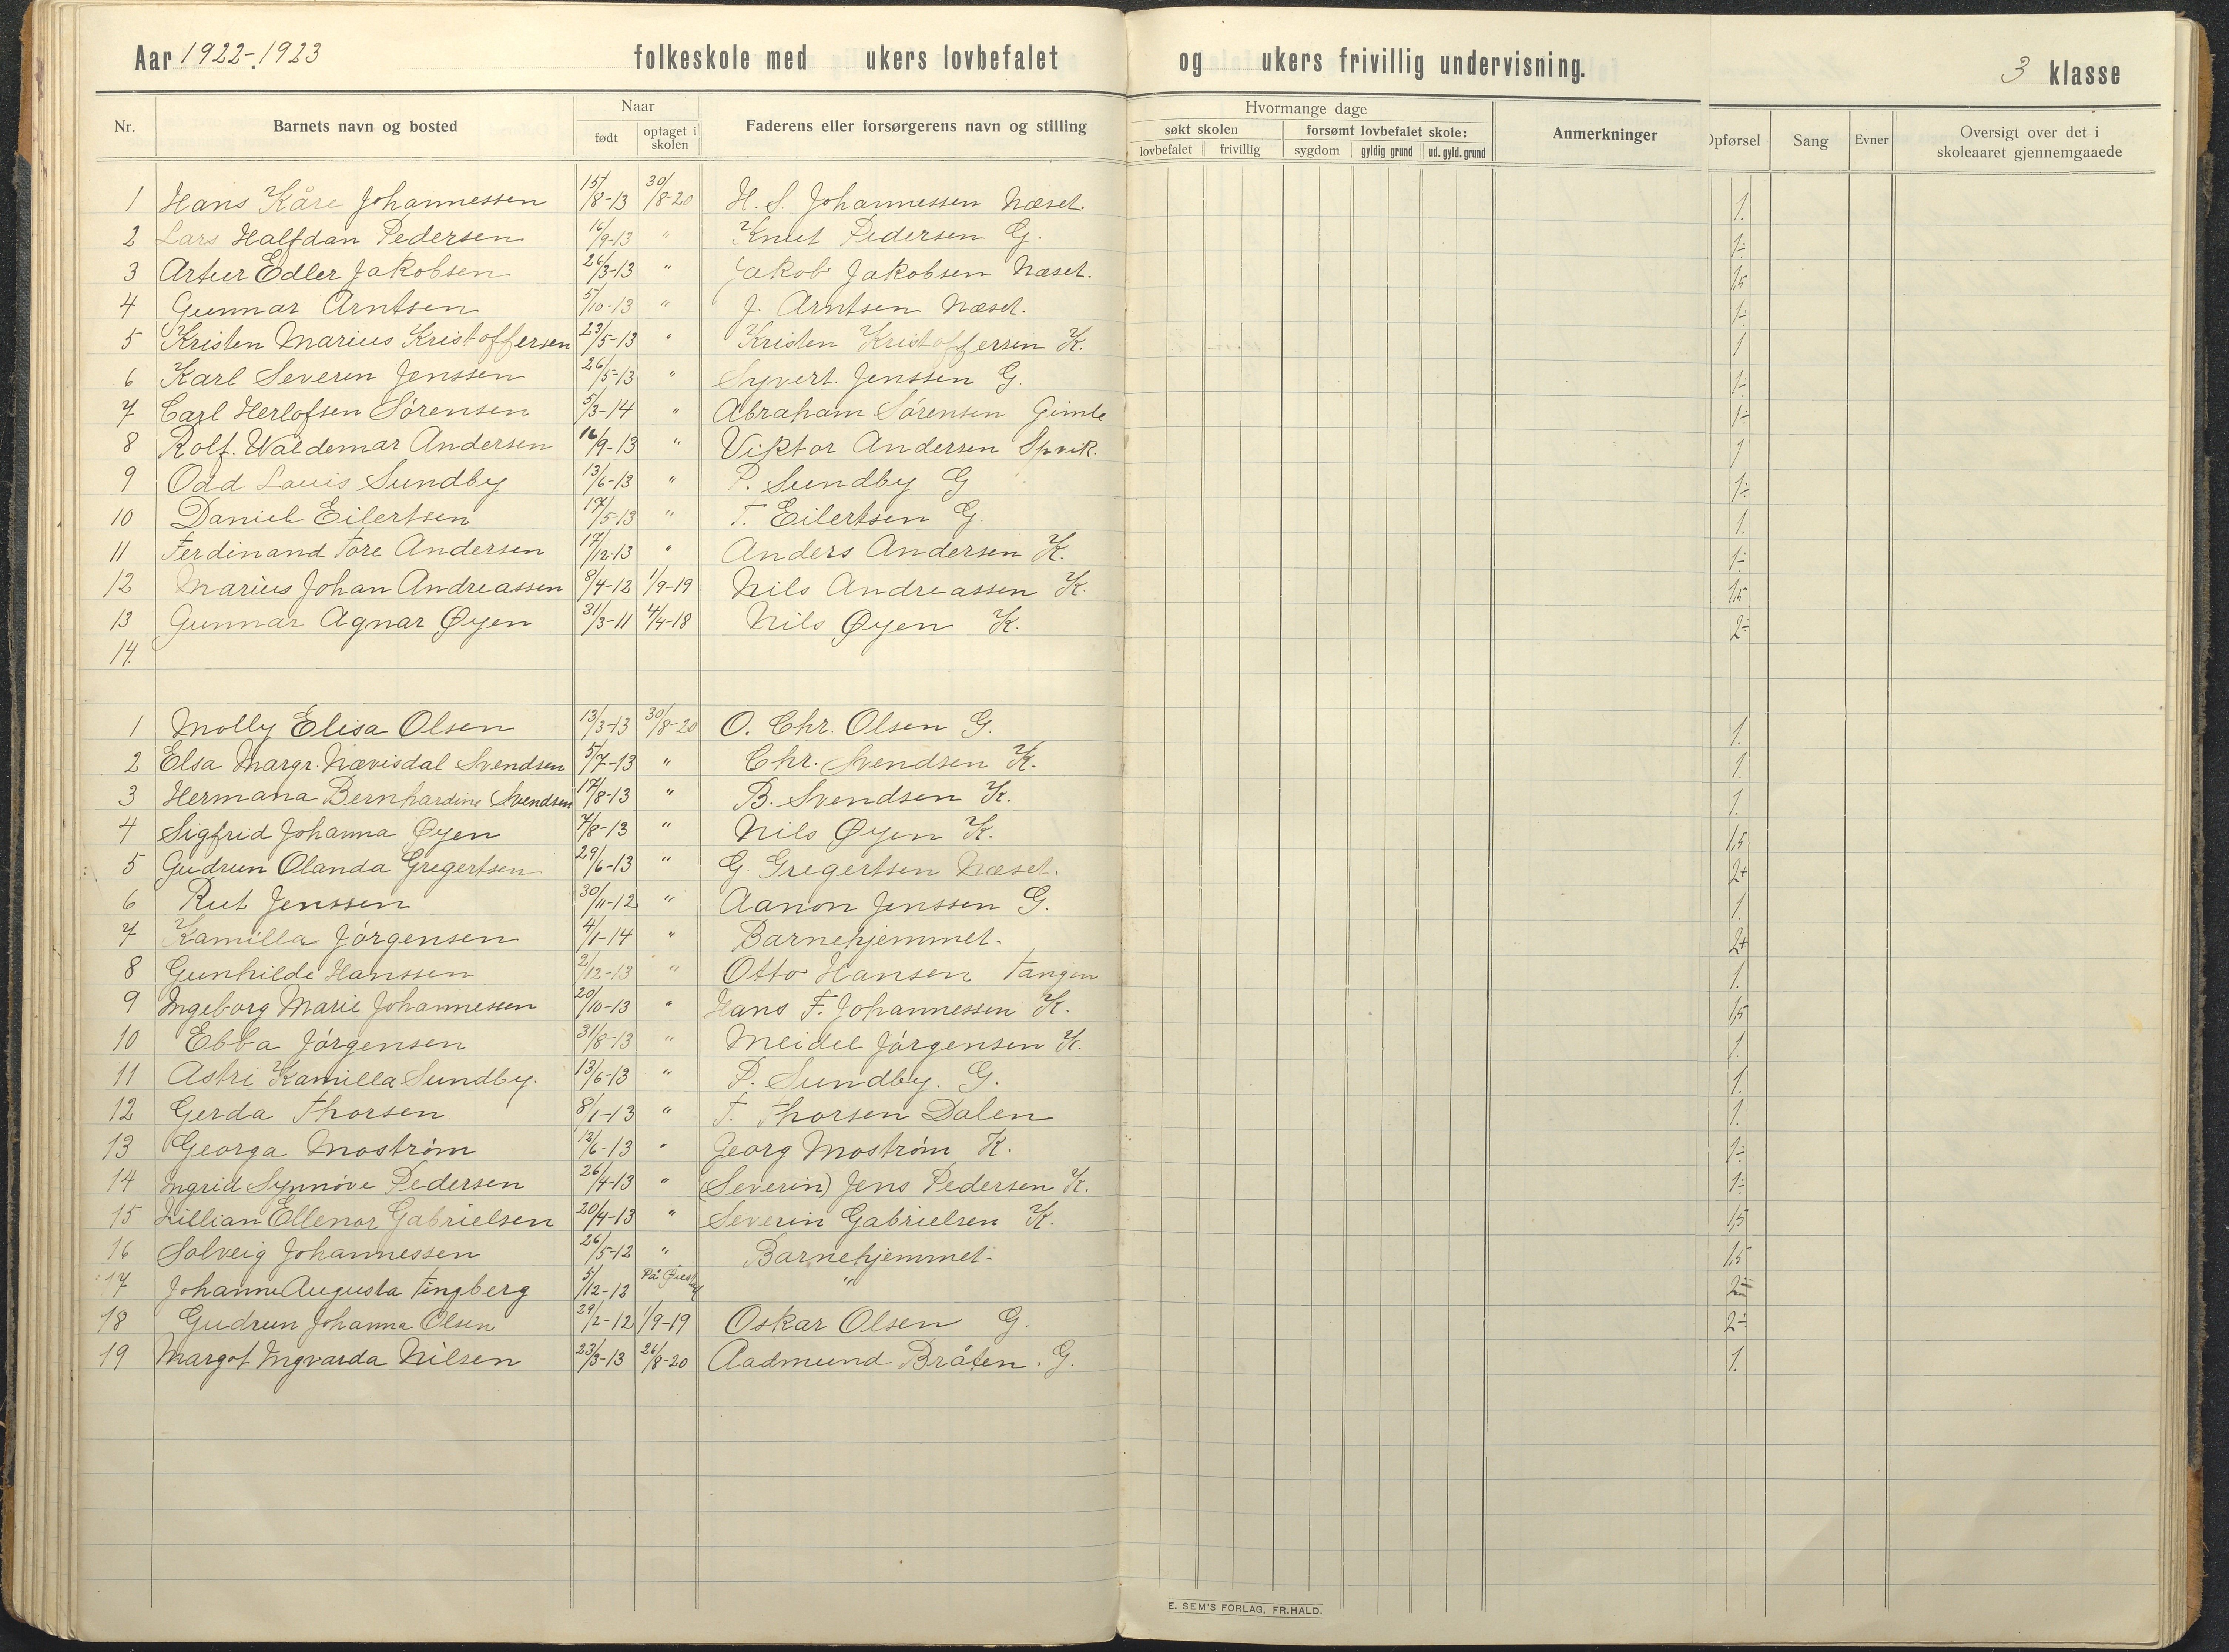 Aar 1922-1923 folkeskole med ukers lovbefalet og ukers frivillig undervisning. 3 klasse
Nr. Barnets navn og bosted Naar født optaget i skolen Faderens eller forsørgerens navn og stilling Hvormange dage søkt skolen lovbefalet frivillig forsømt lovbefalet skole: sygdom gyldig grund ud. gyld. grund Anmerkninger Opførsel Sang Evner Oversigt over det i skoleaaret gjennemgaaede
1 Hans Kåre Johannessen 15/8-13 30/8-20 H. S. Johannessen Næset. 1.
2 Lars Halfdan Pedersen 16/9-13 " Knut Pedersen G. 1÷
3 Artur Edler Jakobsen 26/3-13 " Jakob Jakobsen Næset. 1,5
4 Gunnar Arntsen 5/10-13 " J. Arntsen Næset. 1÷
5 Kristen Marius Kristoffersen 23/5-13 " Kristen Kristoffersen K. 1
6 Karl Severin Jenssen 26/5-13 " Syvert. Jenssen G. 1÷
7 Carl Herlofsen Sørensen 5/3-14 " Abraham Sørensen Gimle 1÷
8 Rolf. Waldemar Andersen 16/9-13 " Viktor Andersen Spvik. 1
9 Odd Louis Sundby 13/6-13 " P. Sundby G 1÷
10 Daniel Eilertsen 17/5-13 " T. Eilertsen G. 1.
11 Ferdinand Tore Andersen 17/12-13 " Anders Andersen K. 1÷
12 Marius Johan Andreassen 8/4-12 1/9-19 Nils Andreassen K. 1,5
13 Gunnar Agnar Øyen 31/3-11 4/4-18 Nils Øyen K. 2÷
14.
1 Molly Elisa Olsen 13/3-13 30/8-20 O. Chr. Olsen G. 1.
2 Elsa Margr. Nævisdal Svendsen 5/7-13 " Chr. Svendsen K. 1.
3 Hermana Bernhardine Svendsen 17/8-13 " B. Svendsen K. 1.
4 Sigfrid Johanna Øyen 7/8-13 " Nils Øyen K. 1,5
5 Gudrun Olanda Gregertsen 29/6-13 " G. Gregertsen Næset. 2+
6 Rut Jenssen 30/11-12 " Aanon Jenssen G. 1.
7 Kamilla Jørgensen 4/1-14 " Barnehjemmet. 2+
8 Gunhilde Hanssen 2/12-13 " Otto Hansen Tangen 1.
9 Ingeborg Marie Johannessen 20/10-13 " Hans F. Johannessen K. 1,5
10 Ebba Jørgensen 31/8-13 " Meidel Jørgensen K. 1.
11 Astri Kamilla Sundby. 13/6-13 " P. Sundby. G. 1.
12 Gerda Thorsen 8/1-13 " T. Thorsen Dalen 1.
13 Georga Mostrøm 12/6-13 " Georg Mostrøm K. 1÷
14 Ingrid Synnøve Pedersen 26/4-13 " (Severin) Jens Pedersen K. 1÷
15 Lillian Ellenor Gabrielsen 20/4-13 " Severin Gabrielsen K. 1,5
16 Solveig Johannessen 26/5-12 " Barnehjemmet- 1,5
17 Johanne Augusta Tingberg 5/12-12 På " 2÷
18 Gudrun Johanna Olsen 29/2-12 1/9-19 Oskar Olsen G. 2÷
19 Margot Ingvarda Nilsen 23/3-13 26/8-20 Aadmund Bråten. G. 1.
E. SEM'S FORLAG, FR.HALD.